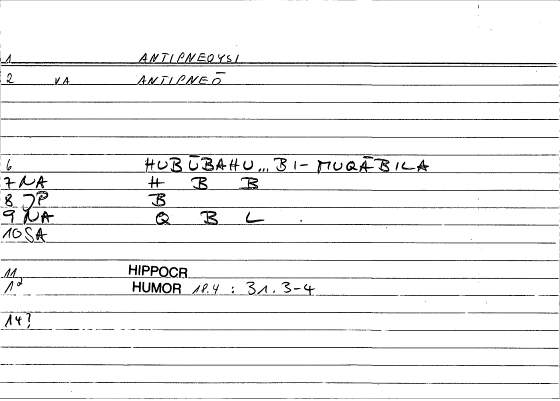 1 ANTIPNEOYSI
2 VA ANTIPNEŌ
6 HUBŪBAHU... BI- MUQĀBILA
7 NA H B B
8 JP B
9 NA Q B L .
10 SA
11 HIPPOCR
12 HUMOR 18.4 : 31.3-4
14?